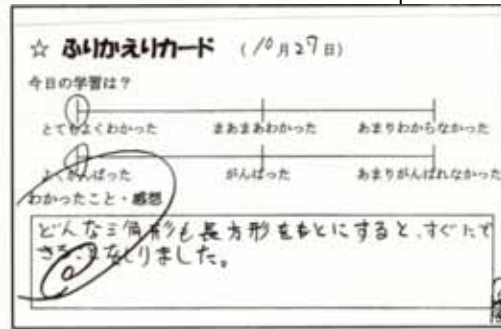 ☆ ふりかえりカード （10月27日）
今日の学習は？
とてもよくわかった まあまあわかった あまりわからなかった
よくがんばった がんばった あまりがんばれなかった
わかったこと・感想
どんな三角形も長方形をもとにすると、すぐにで
きる、となしりました。